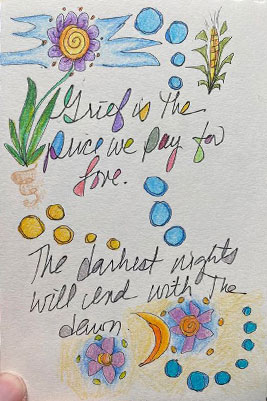 Grief is the
price we pay for
love.
The darkest nights
will end with the
dawn.